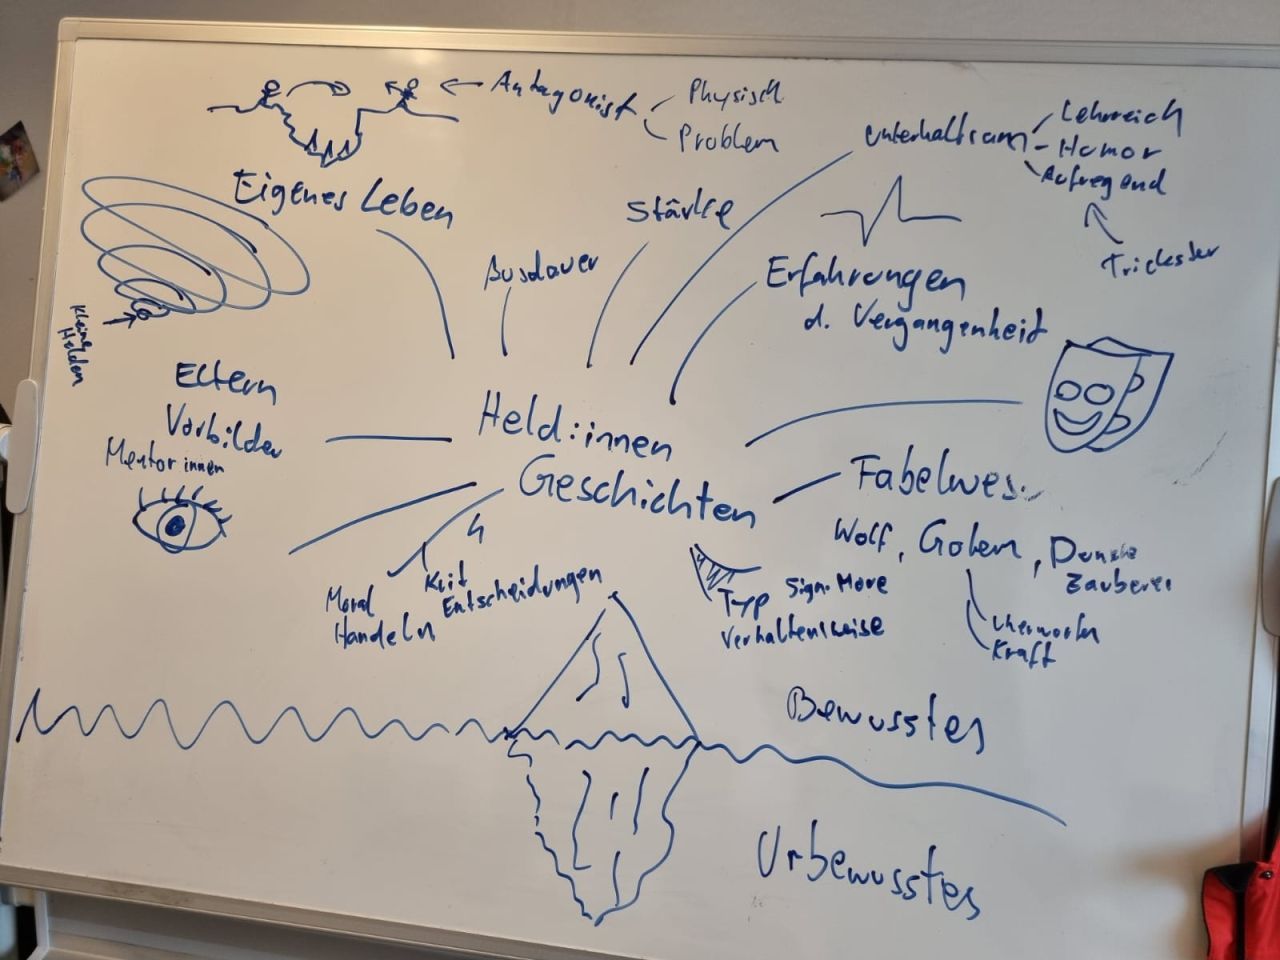 Antagonist
Physisch
Problem
unterhaltsam
Lehrreich
- Humor
Aufregend
Trickster
Eigenes Leben
Stärke
Ausdauer
Erfahrungen
d. Vergangenheit
Helden
Eltern
Vorbilder
Mentor innen
Held:innen
Geschichten
Fabelwes
Wolf, Golem, Dunkle
Zauberer
Kraft
Moral
Handeln
Krit
Entscheidungen
Typ
Verhaltensweise
Bewusstes
Unbewusstes